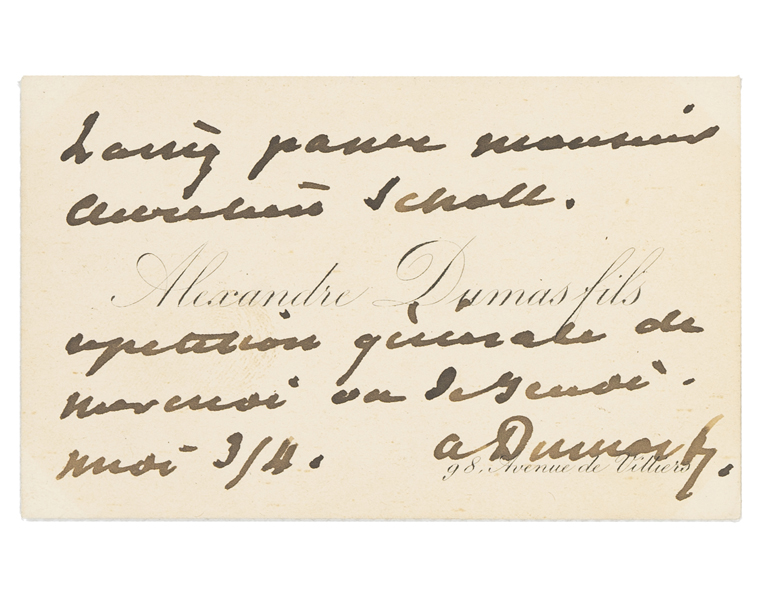 Laissez passer monsieur
Aurelien Scholl.
Alexandre Dumas fils
repetition générale de
mercredi ou de jeudi.
midi 3/4. a Dumas f.
98, Avenue de Villiers